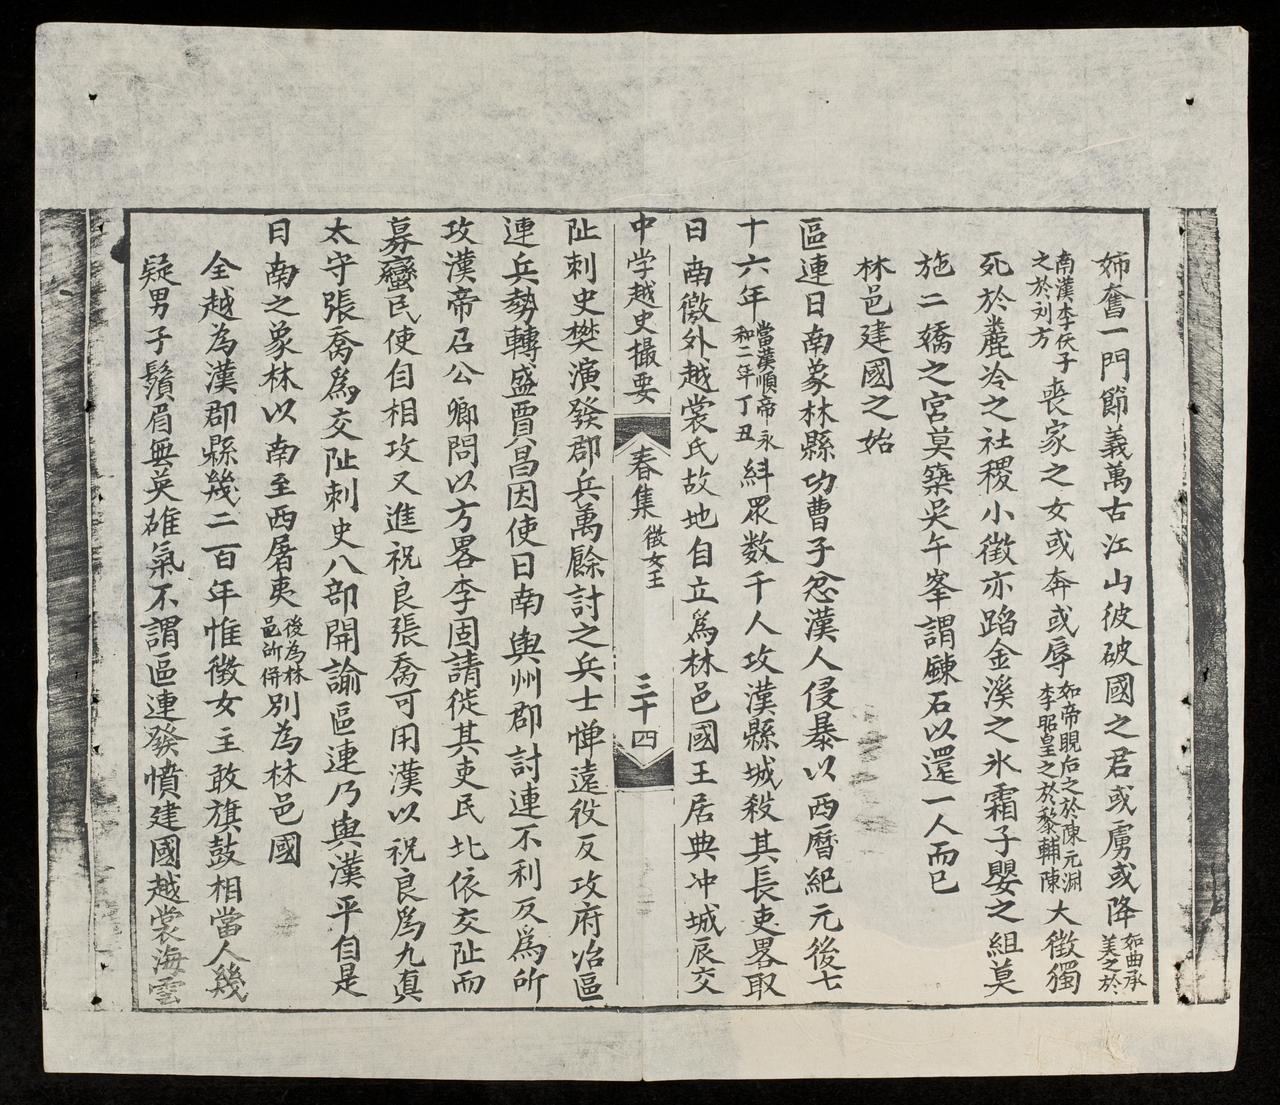 姉奮一門節義萬古江山彼破國之君或虜或降如曲承美之於
南漢李仸子之於刘方喪家之女或奔或辱如帝睍后之於陳元淵李昭皇之於黎輔陳大徵獨
死於麊泠之社稷小徵亦蹈金溪之氷霜子嬰之組莫
施二嬌之宮莫築吳午峯謂鍊石以還一人而已
林邑建國之始
區連日南象林縣功曹子忿漢人侵暴以西曆紀元後七
十六年當漢順帝永和二年丁丑糾眾数千人攻漢縣城殺其長吏畧取
日南徼外越裳氏故地自立爲林邑國王居典冲城辰交
中学越史撮要 春集 徵女王 三十四
阯刺史樊演發郡兵萬餘討之兵士憚遠役反攻府治區
連兵勢轉盛賈昌因使日南與州郡討連不利反爲所
攻漢帝召公卿問以方畧李固請徙其吏民北依交阯而
募蠻民使自相攻又進祝良張喬可用漢以祝良爲九真
太守張喬爲交阯刺史八部開諭區連乃與漢平自是
日南之象林以南至西屠夷後為林邑所併別為林邑國
全越為漢郡縣幾二百年惟徵女主敢旗鼓相當人幾
疑男子鬚眉無英雄氣不謂區連發憤建國越裳海雲